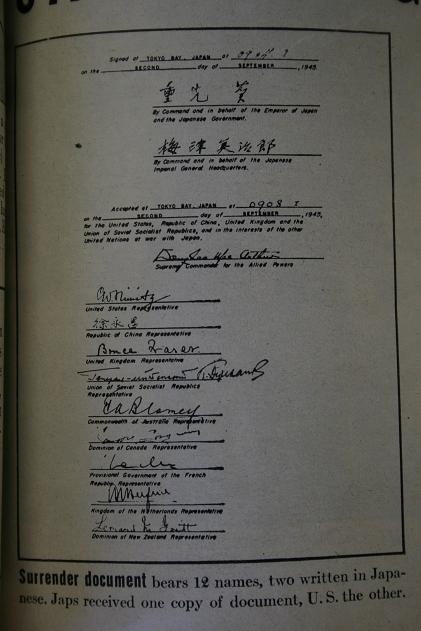 Signed at TOKYO BAY, JAPAN at 0904 I
on the SECOND day of SEPTEMBER, 1945.
重光葵
By Command and in behalf of the Emperor of Japan
and the Japanese Government.
梅津美治郎
By Command and in behalf of the Japanese
Imperial General Headquarters.
Accepted at TOKYO BAY, JAPAN at 0908 I
on the SECOND day of SEPTEMBER, 1945,
for the United States, Republic of China, United Kingdom and the
Union of Soviet Socialist Republics, and in the interests of the other
United Nations at war with Japan.
Douglas MacArthur
Supreme Commander for the Allied Powers
C.W. Nimitz
United States Representative
徐永昌
Republic of China Representative
Bruce Fraser
United Kingdom Representative
Union of Soviet Socialist Republics
Representative
T.A. Blamey
Commonwealth of Australia Representative
Dominion of Canada Representative
Provisional Government of the French
Republic Representative
Kingdom of the Netherlands Representative
Leonard M. Isitt
Dominion of New Zealand Representative
Surrender document bears 12 names, two written in Japa-
nese. Japs received one copy of document, U. S. the other.